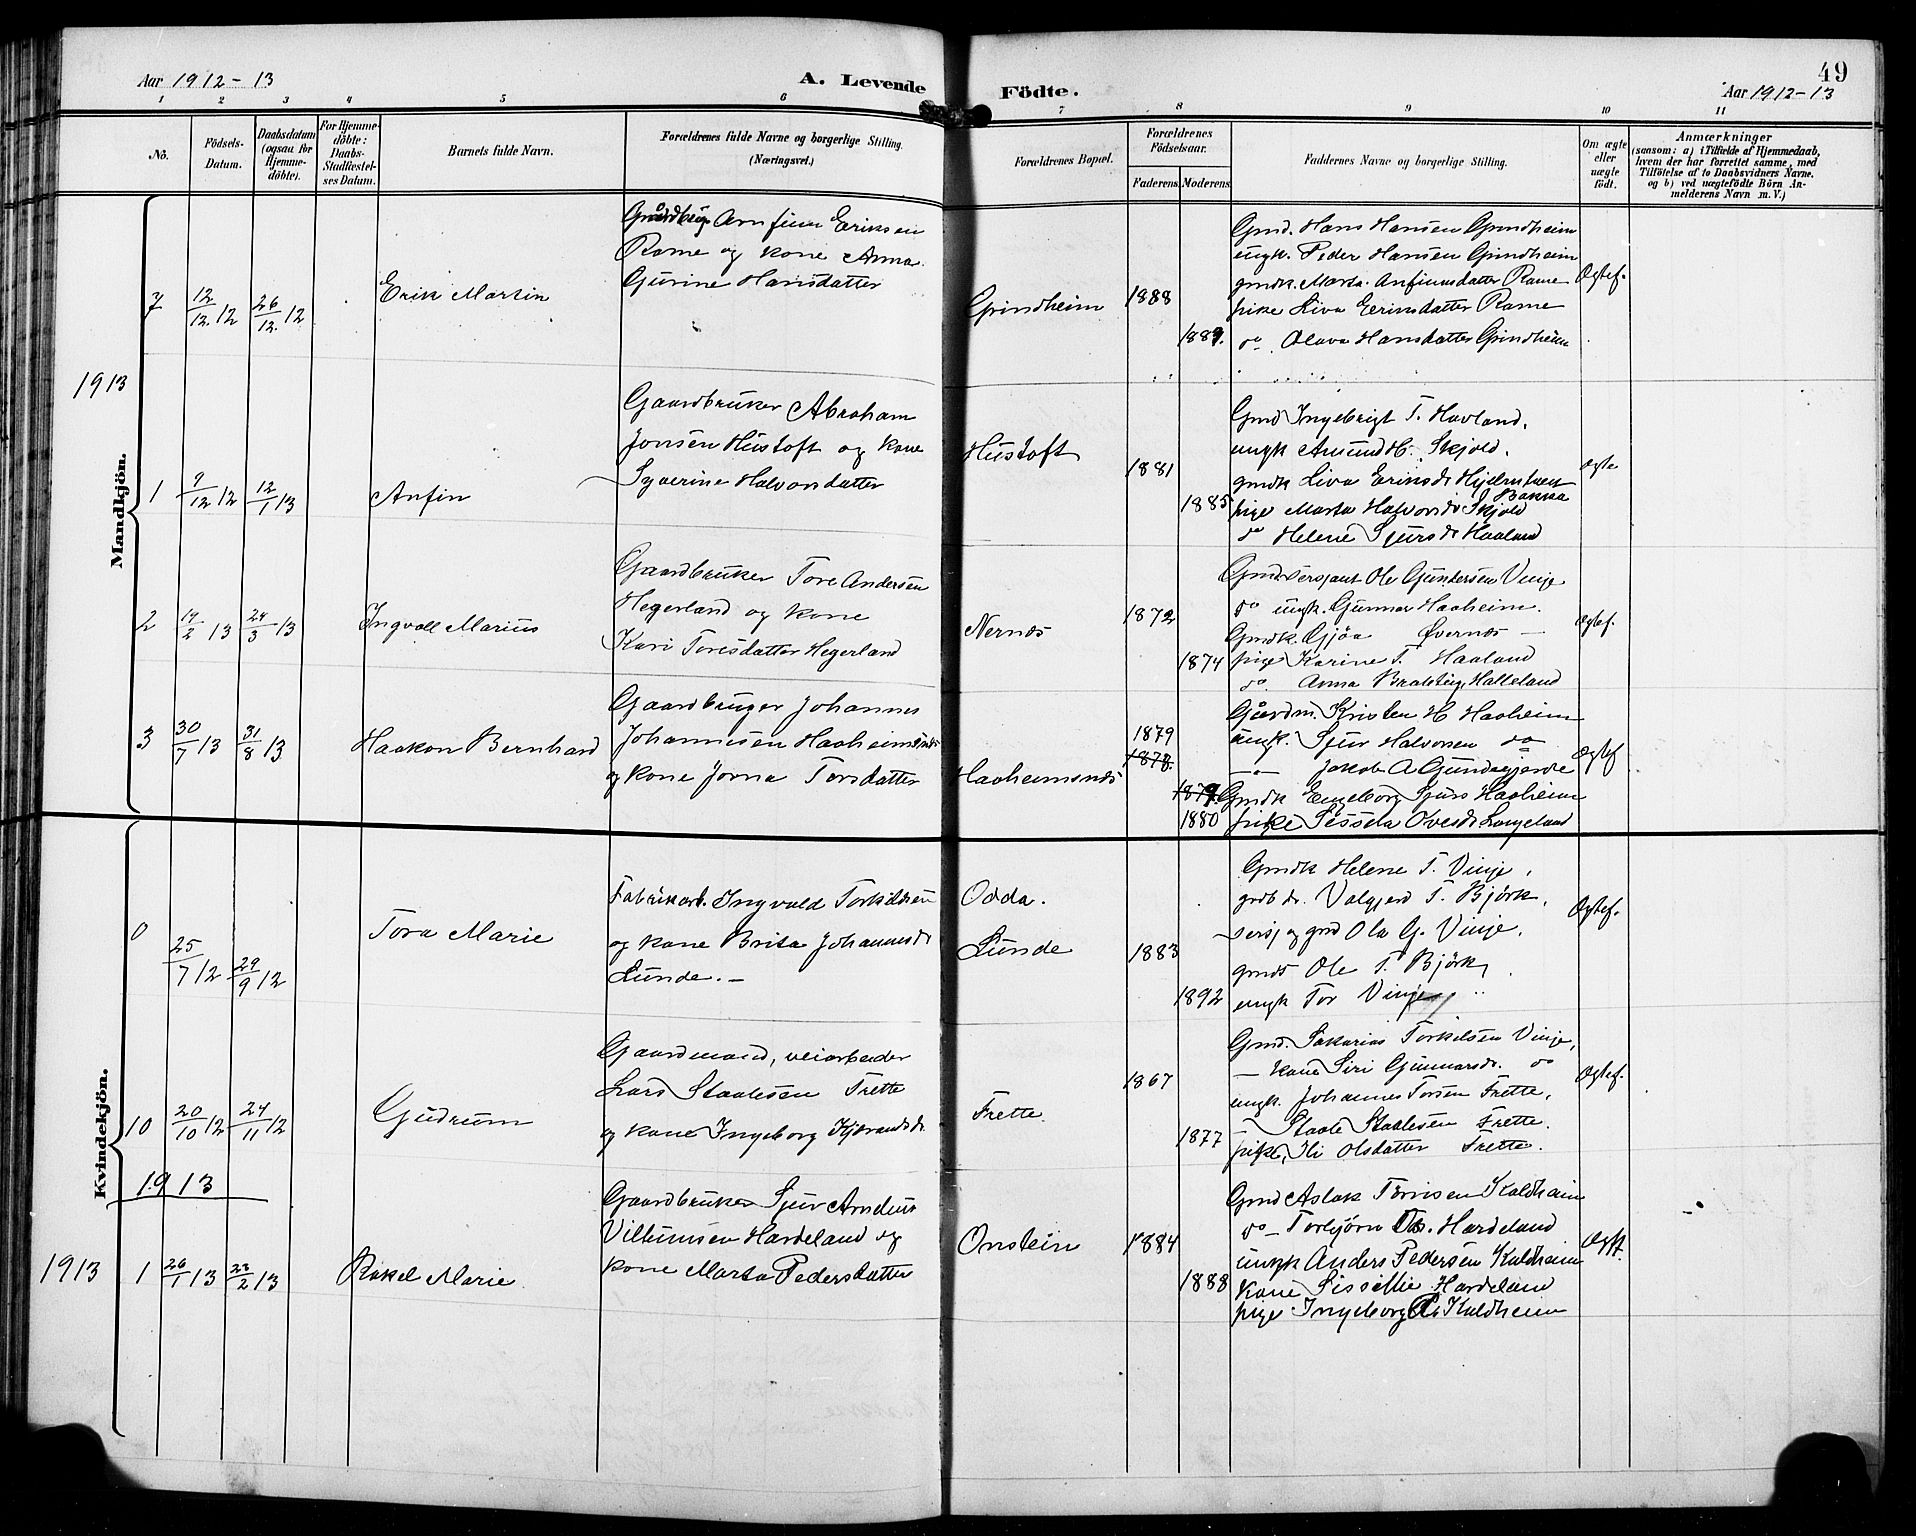 Aar 1912-13
A. Levende
Födte.
49
Aar 1912-13
1 2 3 4 5 6 7 8 9 10 11
No.
Födsels-
Datum.
Daabsdatum
(ogsaa for
Hjemme-
döbte).
For Hjemme-
döbte:
Daabs-
Stadfæstel-
ses Datum.
Barnets fulde Navn.
Forældrenes fulde Navne og borgerlige Stilling.
(Næringsvei.)
Forældrenes Bopæl.
Forældrenes
Födselsaar.
Faderens.
Moderens.
Faddernes Navne og borgerlige Stilling.
Om ægte
eller
uægte
födt.
Anmærkninger
(saasom: a) i Tilfælde af Hjemmedaab,
hvem der har forrettet samme, med
Tilföielse af to Daabsvidners Navne.
og b) ved uægtefödte Börn An-
melderens Navn m. V.)
Mandkjön.
7
12/12 12
26/12 12
Erik Martin
Arnfinn Eriksen
Rame og kone Anna
Gurine Hansdatter
Grindheim
1888
1889.
Gmd. Hans Hansen Grindheim
ungk. Peder Hansen Grindheim
gmdk. Marta Anfinnsdatter Rame
pike Liva Eriksdatter Rame
do Olava Hansdatter Grindheim
Ægtef.
1913
1
9/12 12
12/1 13
Anfin
Gaardbruker Abraham
Jonsen Hustoft og kone
Syverine Halvorsdatter
Hustoft
1881
1885
Gmd Ingebrigt T. Havland.
ungk Amund H. Skjold.
gmdk Liva Eriksdr
Bakka
pige Marta Halvorsdr Skjold
do Helene Sjursdr Haaland
Ægte
2
19/2 13
24/3 13
Ingvald Marius
Gaardbruker Tore Andersen
Hegerland og kone
Kari Toresdatter Hegerland
Nernes
1872
1874
Gmd sersjant Ole Gundersen Vinje
do ungk. Gunnar Haaheim.
Gmdk. Gjøa Øvernes -
pige Karine T. Haaland
do. Anna Halleland
Ægtef.
3
30/7 13
31/8 13
Haakon Bernhard
Gaardbruger Johannes
Johannesen Haaheimsnes
og kone Jorna Torsdatter
Haaheimsnes
1879
1878.
1879.
1880
Gaardm. Kristen H Haaheim
ungk. Sjur Halvorsen do
-"- Jakob A Gundegjerde
Gmdk Engeborg Sjurs Haaheim
pike Sissela Ovesdr Langeland
Ægtef
Kvindekjön.
0
25/7 12
29/9 12
Tora Marie
Fabrikarb. Ingvald Torkildsen
og kone Brita Johannesdr
Lunde. -
Odda.
Lunde
1883
1892
Gmdk Helene T. Vinje,
grdb dr. Valgjerd T. Björk,
sersj og gmd Ola G. Vinje,
gmds Ole T. Björk,
ungk Tor Vinje
Ægtef.
10
20/10 12
24/11 12
Gudrum
Gaardmand, veiarbeider
Lars Staalesen Frette
og kone Ingeborg
Frette.
1867
1877
Gmd. Sakarias Torkelsen Vinje,
- kone Siri Gunnarsdr. do
ungk. Johannes Torsen Frette,
- Staale Staalesen Frette.
pike, Ili Olsdatter Frette.
Ægtef.
1913
1913
1
26/1 13
23/2 13
Rakel Marie.
Gaardbruker Sjur Amdeus
Vilhumsen Hardeland og
kone Marta Pedersdatter
Onstein
1884
1888
Gmd Aslak Kaldheim
do - Torbjörn Hardeland
ungk Anders Pedersen Kaldheim
kone Hardeland
pige Ingeborg Kaldheim
Ægt.